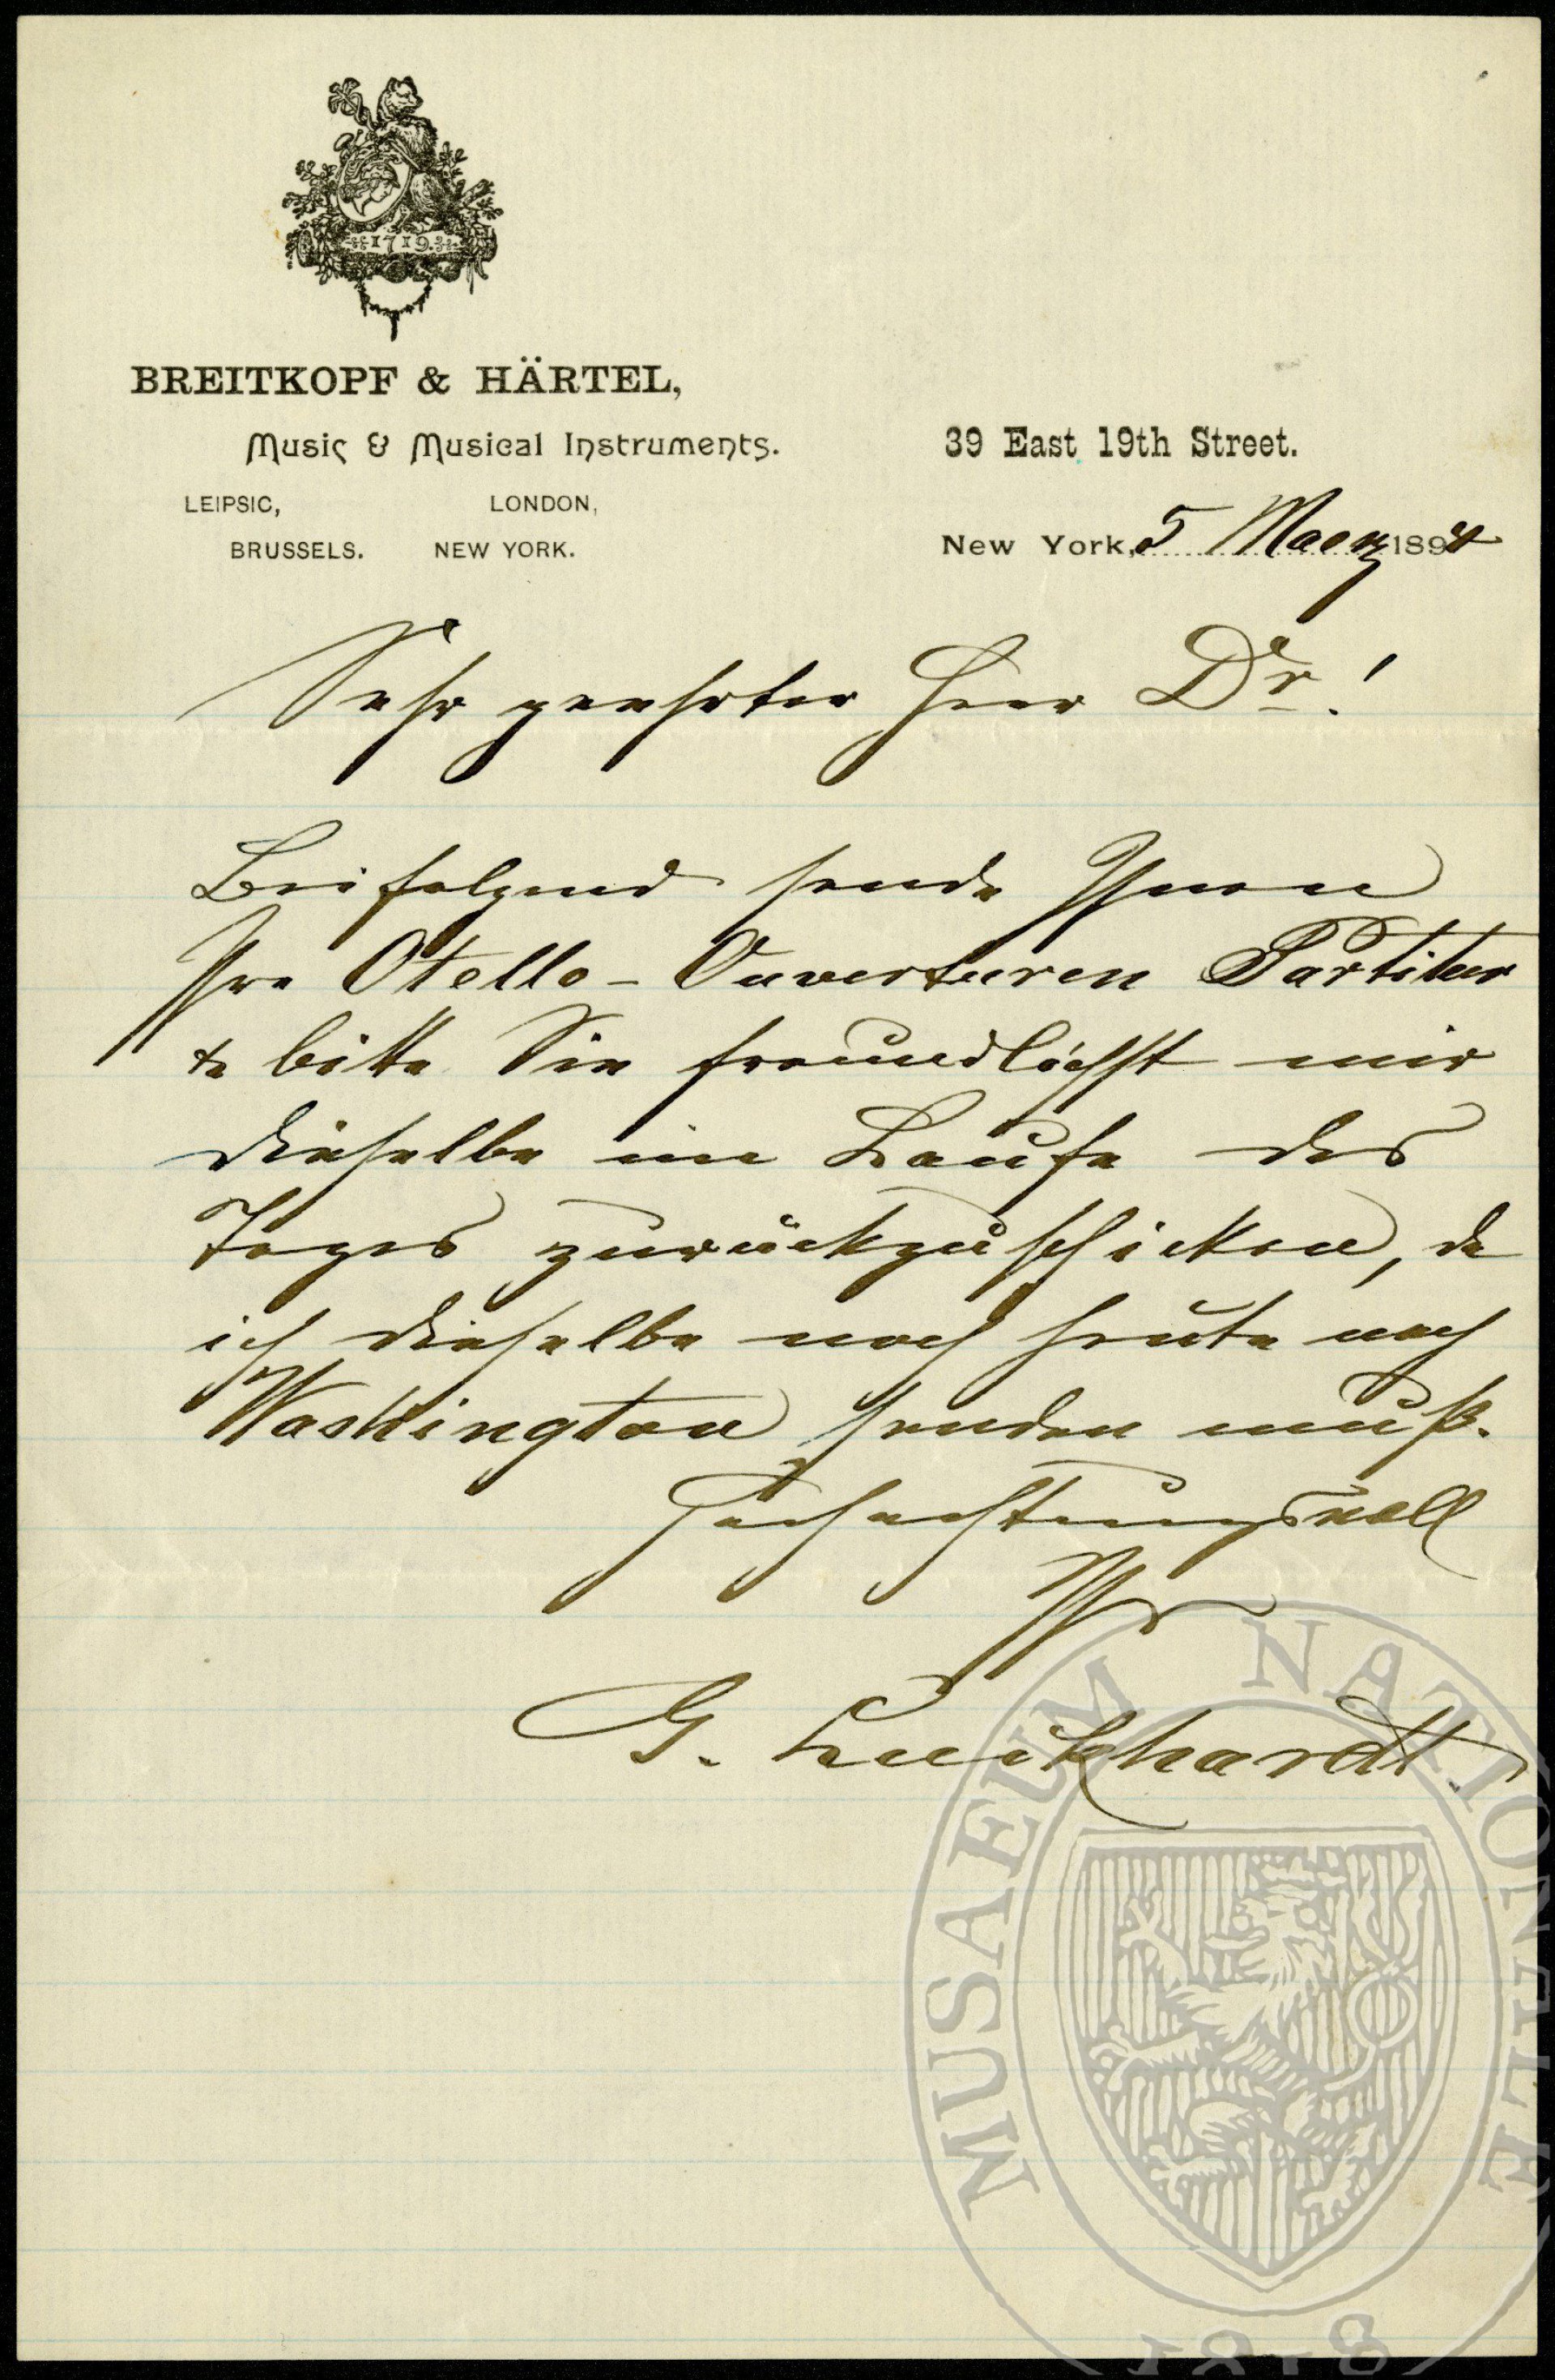 1719.
BREITKOPF & HÄRTEL,
Music & Musical Instruments.
LEIPSIC, LONDON,
BRUSSELS. NEW YORK.
39 East 19th Street.
New York, 5 Maerz 1894
Sehr geehrter Herr Dr!
Beifolgend sende Ihnen
Ihre Otello-Ouverturen Partitur
& bitte Sie freundlichst mir
dieselbe im Laufe des
Tages zurückzuschicken, da
ich dieselbe noch heute nach
Washington senden muß.
Hochachtungsvoll
Ihr
G. Luckhardt
MUSAEUM NATIONALE
1818